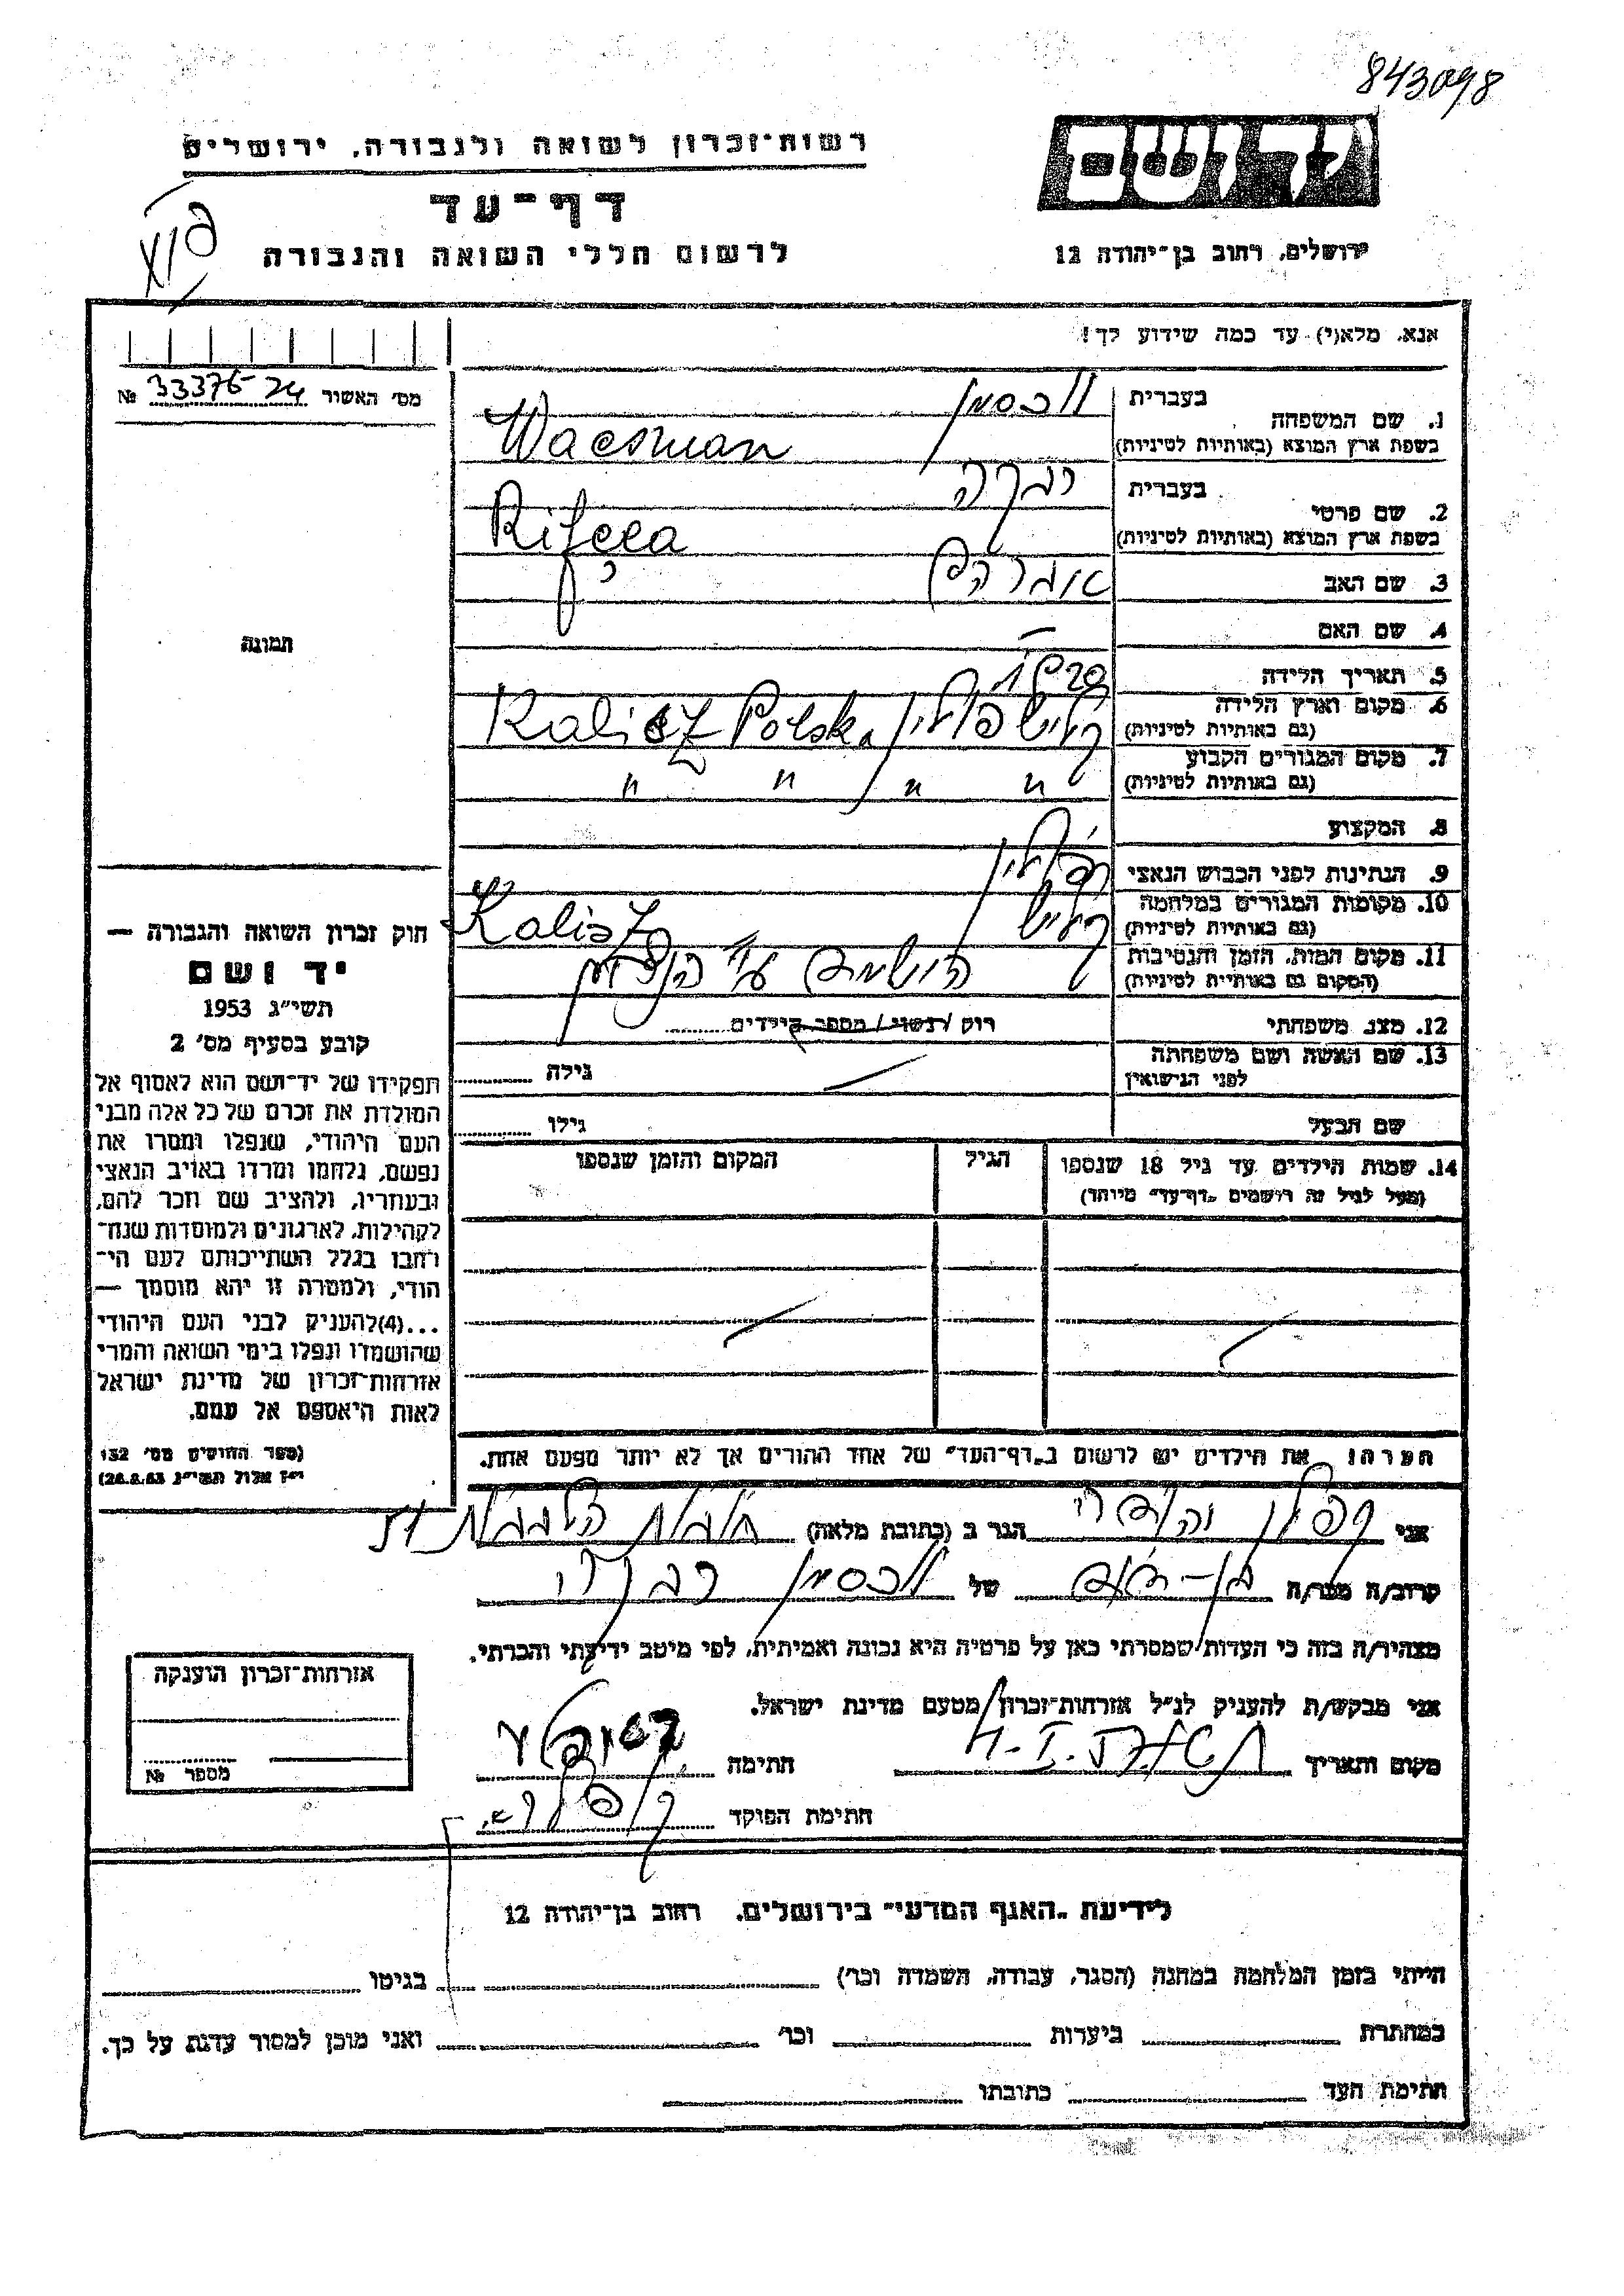 843098
רשות־זכרון לשואה ולגבורה, ירושלים
דף־עד
לרשום חללי השואה והגבורה
יד ושם
ירושלים, רחוב בן־יהודה 12
אנא, מלא(י) עד כמה שידוע לך!
מס׳ האשור 33376-24 №
1. שם המשפחה
בעברית וכסמן
בשפת ארץ המוצא (באותיות לטיניות) Wacsman
2. שם פרטי
בעברית רבקה
בשפת ארץ המוצא (באותיות לטיניות)
3. שם האב אברהם
4. שם האם —
5. תאריך הלידה 1920
6. מקום וארץ הלידה
(גם באותיות לטיניות) קליש פולין Kalisz Polska
7. מקום המגורים הקבוע
(גם באותיות לטיניות) " " " "
8. המקצוע
9. הנתינות לפני הכבוש הנאצי פולין
10. מקומות המגורים במלחמה
(גם באותיות לטיניות) קליש Kalisz
11. מקום המות, הזמן והנסיבות
(המקום גם באותיות לטיניות)
12. מצב משפחתי רוק / נשוי / מספר הילדים
13. שם האשה ושם משפחתה
לפני הנישואין גילה
שם הבעל גילו
14. שמות הילדים עד גיל 18 שנספו הגיל המקום והזמן שנספו
(מעל לגיל זה רושמים „דף־עד״ מיוחד)
תמונה
חוק זכרון השואה והגבורה —
יד ושם
תשי״ג 1953
קובע בסעיף מס׳ 2
תפקידו של יד־ושם הוא לאסוף אל
המולדת את זכרם של כל אלה מבני
העם היהודי, שנפלו ומסרו את
נפשם, נלחמו ומרדו באויב הנאצי
ובעוזריו, ולהציב שם וזכר להם,
לקהילות, לארגונים ולמוסדות שנח־
רבו בגלל השתייכותם לעם הי־
הודי, ולמטרה זו יהא מוסמך —
...(4) להעניק לבני העם היהודי
שהושמדו ונפלו בימי השואה והמרי
אזרחות־זכרון של מדינת ישראל
לאות היאספם אל עמם.
(ספר החוקים מס׳ 132
י״ז אלול תשי״ג 28.8.53)
הערה: את הילדים יש לרשום ב„דף־העד״ של אחד ההורים אך לא יותר מפעם אחת.
אני הגר ב (כתובת מלאה)
קרוב/ה מכר/ה של וכסמן רבקה
מצהיר/ה בזה כי העדות שמסרתי כאן על פרטיה היא נכונה ואמיתית, לפי מיטב ידיעתי והכרתי.
אני מבקש/ת להעניק לנ״ל אזרחות־זכרון מטעם מדינת ישראל.
מקום ותאריך חתימה
חתימת הפוקד
אזרחות־זכרון הוענקה
מספר №
לידיעת „האגף המדעי״ בירושלים, רחוב בן־יהודה 12
הייתי בזמן המלחמה במחנה (הסגר, עבודה, השמדה וכר׳) בגיטו
במחתרת ביערות וכר׳ ואני מוכן למסור עדות על כך.
חתימת העד כתובתו